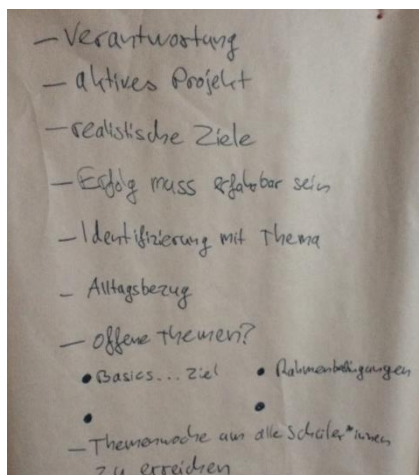 – Verantwortung
– aktives Projekt
– realistische Ziele
– Erfolg muss erfahrbar sein
– Identifizierung mit Thema
– Alltagsbezug
– offene Themen?
• Basics... Ziel • Rahmenbedingungen
• •
– Themenwoche um alle Schüler*innen
zu erreichen